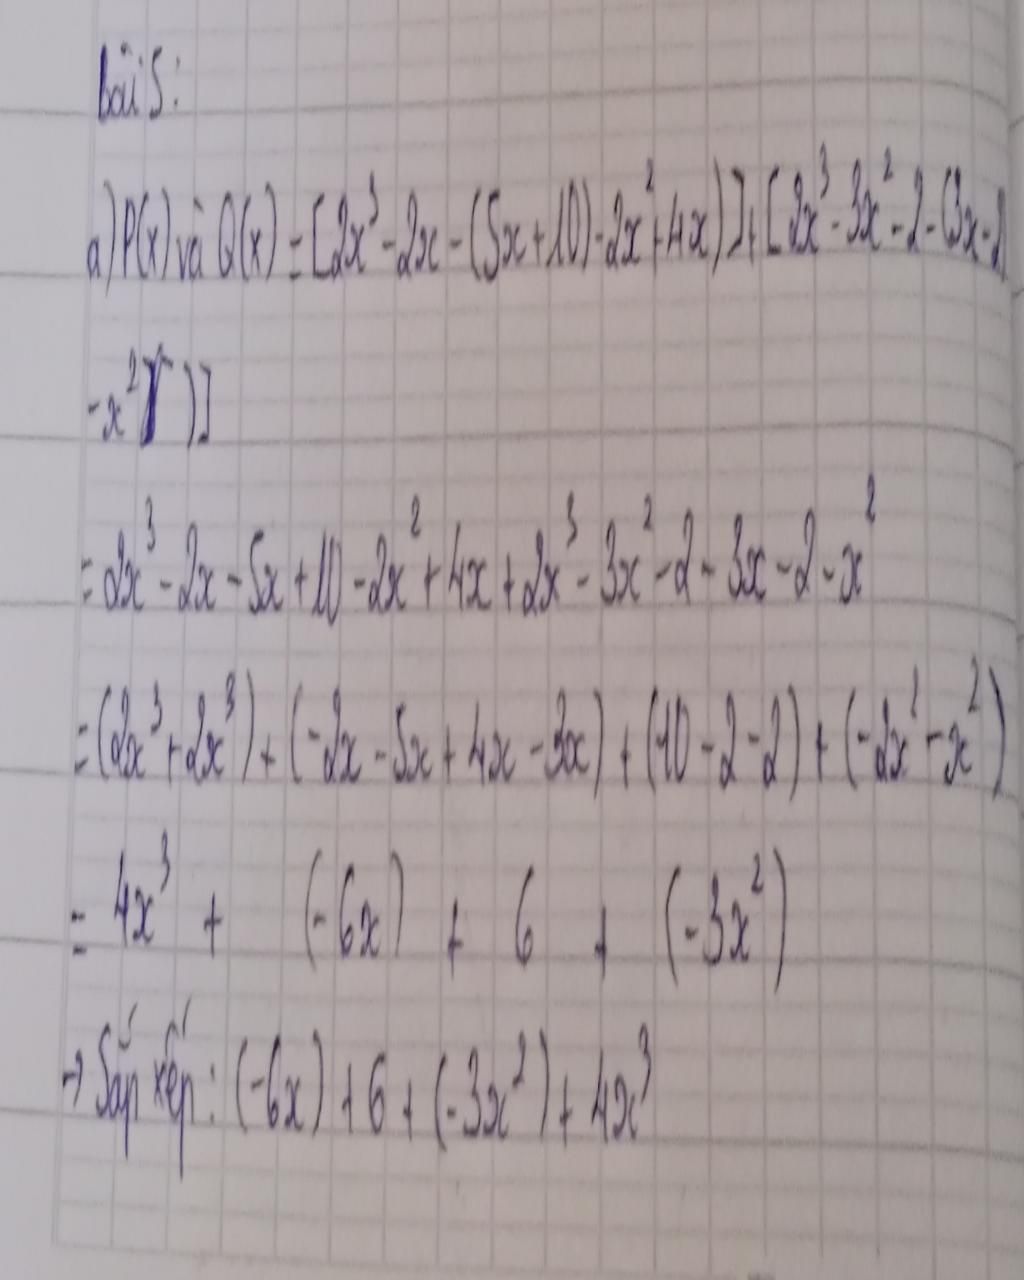 bài 5:
a) P(x) và Q(x) = [2x³ - 2x - (5x + 10) - 2x² + 4x)] + [2x³ - 3x² - 2 - (3x - 2
- x²)]
= 2x³ - 2x - 5x + 10 - 2x² + 4x + 2x³ - 3x² - 2 - 3x - 2 - x²
= (2x³ + 2x³) + (-2x - 5x + 4x - 3x) + (10 - 2 - 2) + (-2x² - x²)
= 4x³ + (-6x) + 6 + (-3x²)
→ Sắp xếp: (-6x) + 6 + (-3x²) + 4x³